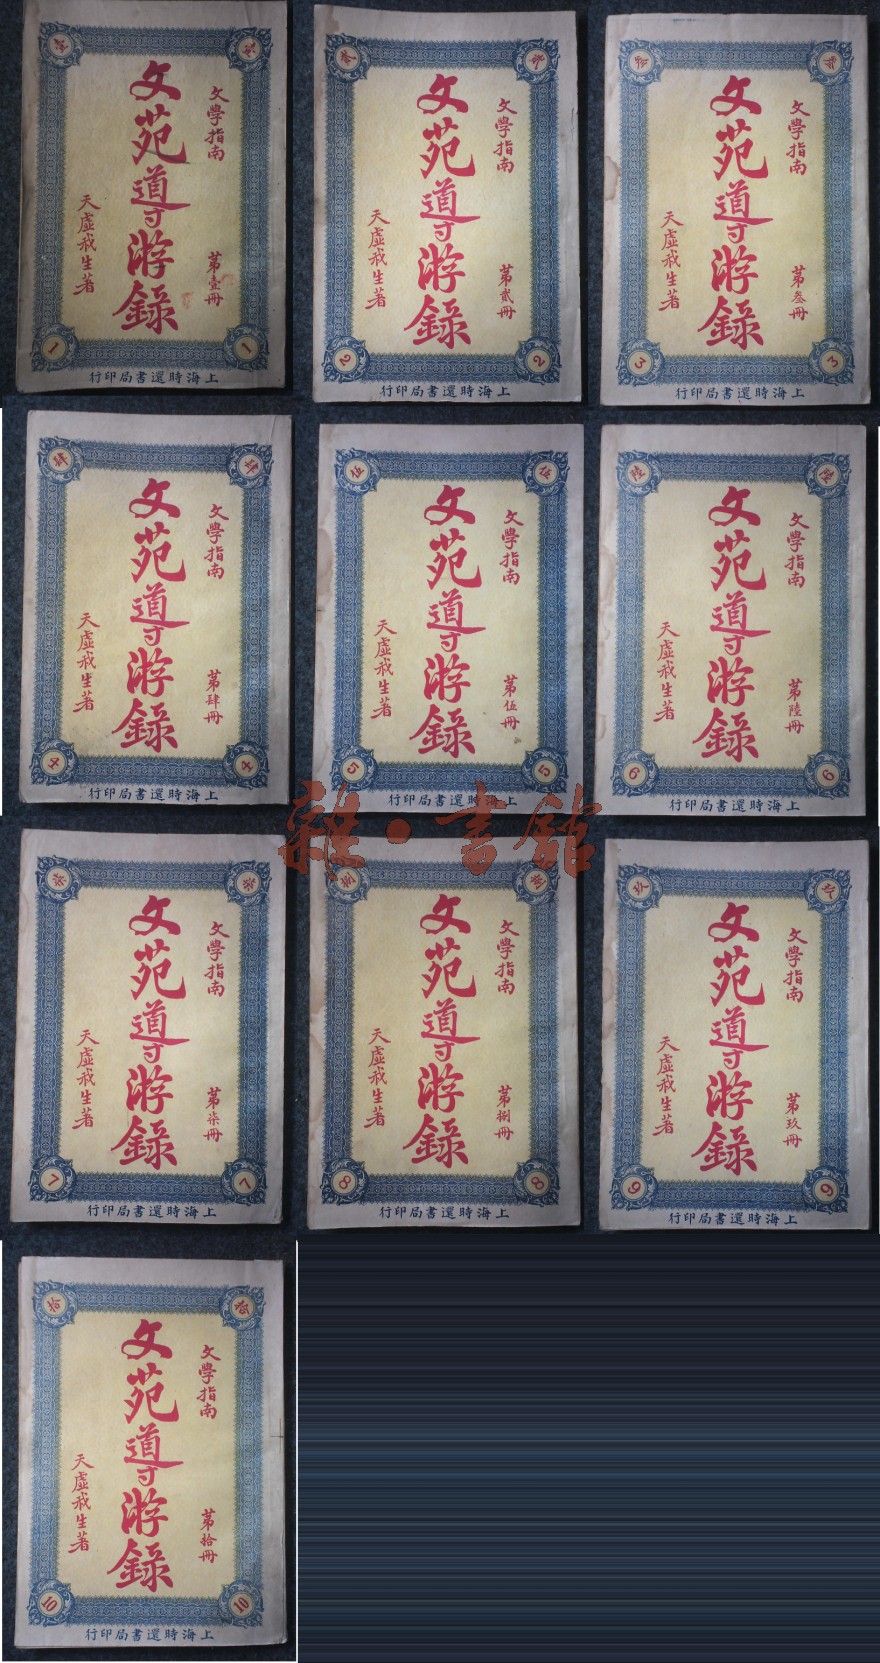 壹
壹
文學指南
第壹冊
文苑導游錄
天虛我生著
1
1
上海時還書局印行
貳
貳
文學指南
第貳冊
文苑導游錄
天虛我生著
2
2
上海時還書局印行
叁
叁
文學指南
第叁冊
文苑導游錄
天虛我生著
3
3
上海時還書局印行
肆
肆
文學指南
第肆冊
文苑導游錄
天虛我生著
4
4
上海時還書局印行
伍
伍
文學指南
第伍冊
文苑導游錄
天虛我生著
5
5
上海時還書局印行
陸
陸
文學指南
第陸冊
文苑導游錄
天虛我生著
6
6
上海時還書局印行
雜·書館
柒
柒
文學指南
第柒冊
文苑導游錄
天虛我生著
7
7
上海時還書局印行
捌
捌
文學指南
第捌冊
文苑導游錄
天虛我生著
8
8
上海時還書局印行
玖
玖
文學指南
第玖冊
文苑導游錄
天虛我生著
9
9
上海時還書局印行
拾
拾
文學指南
第拾冊
文苑導游錄
天虛我生著
10
10
上海時還書局印行